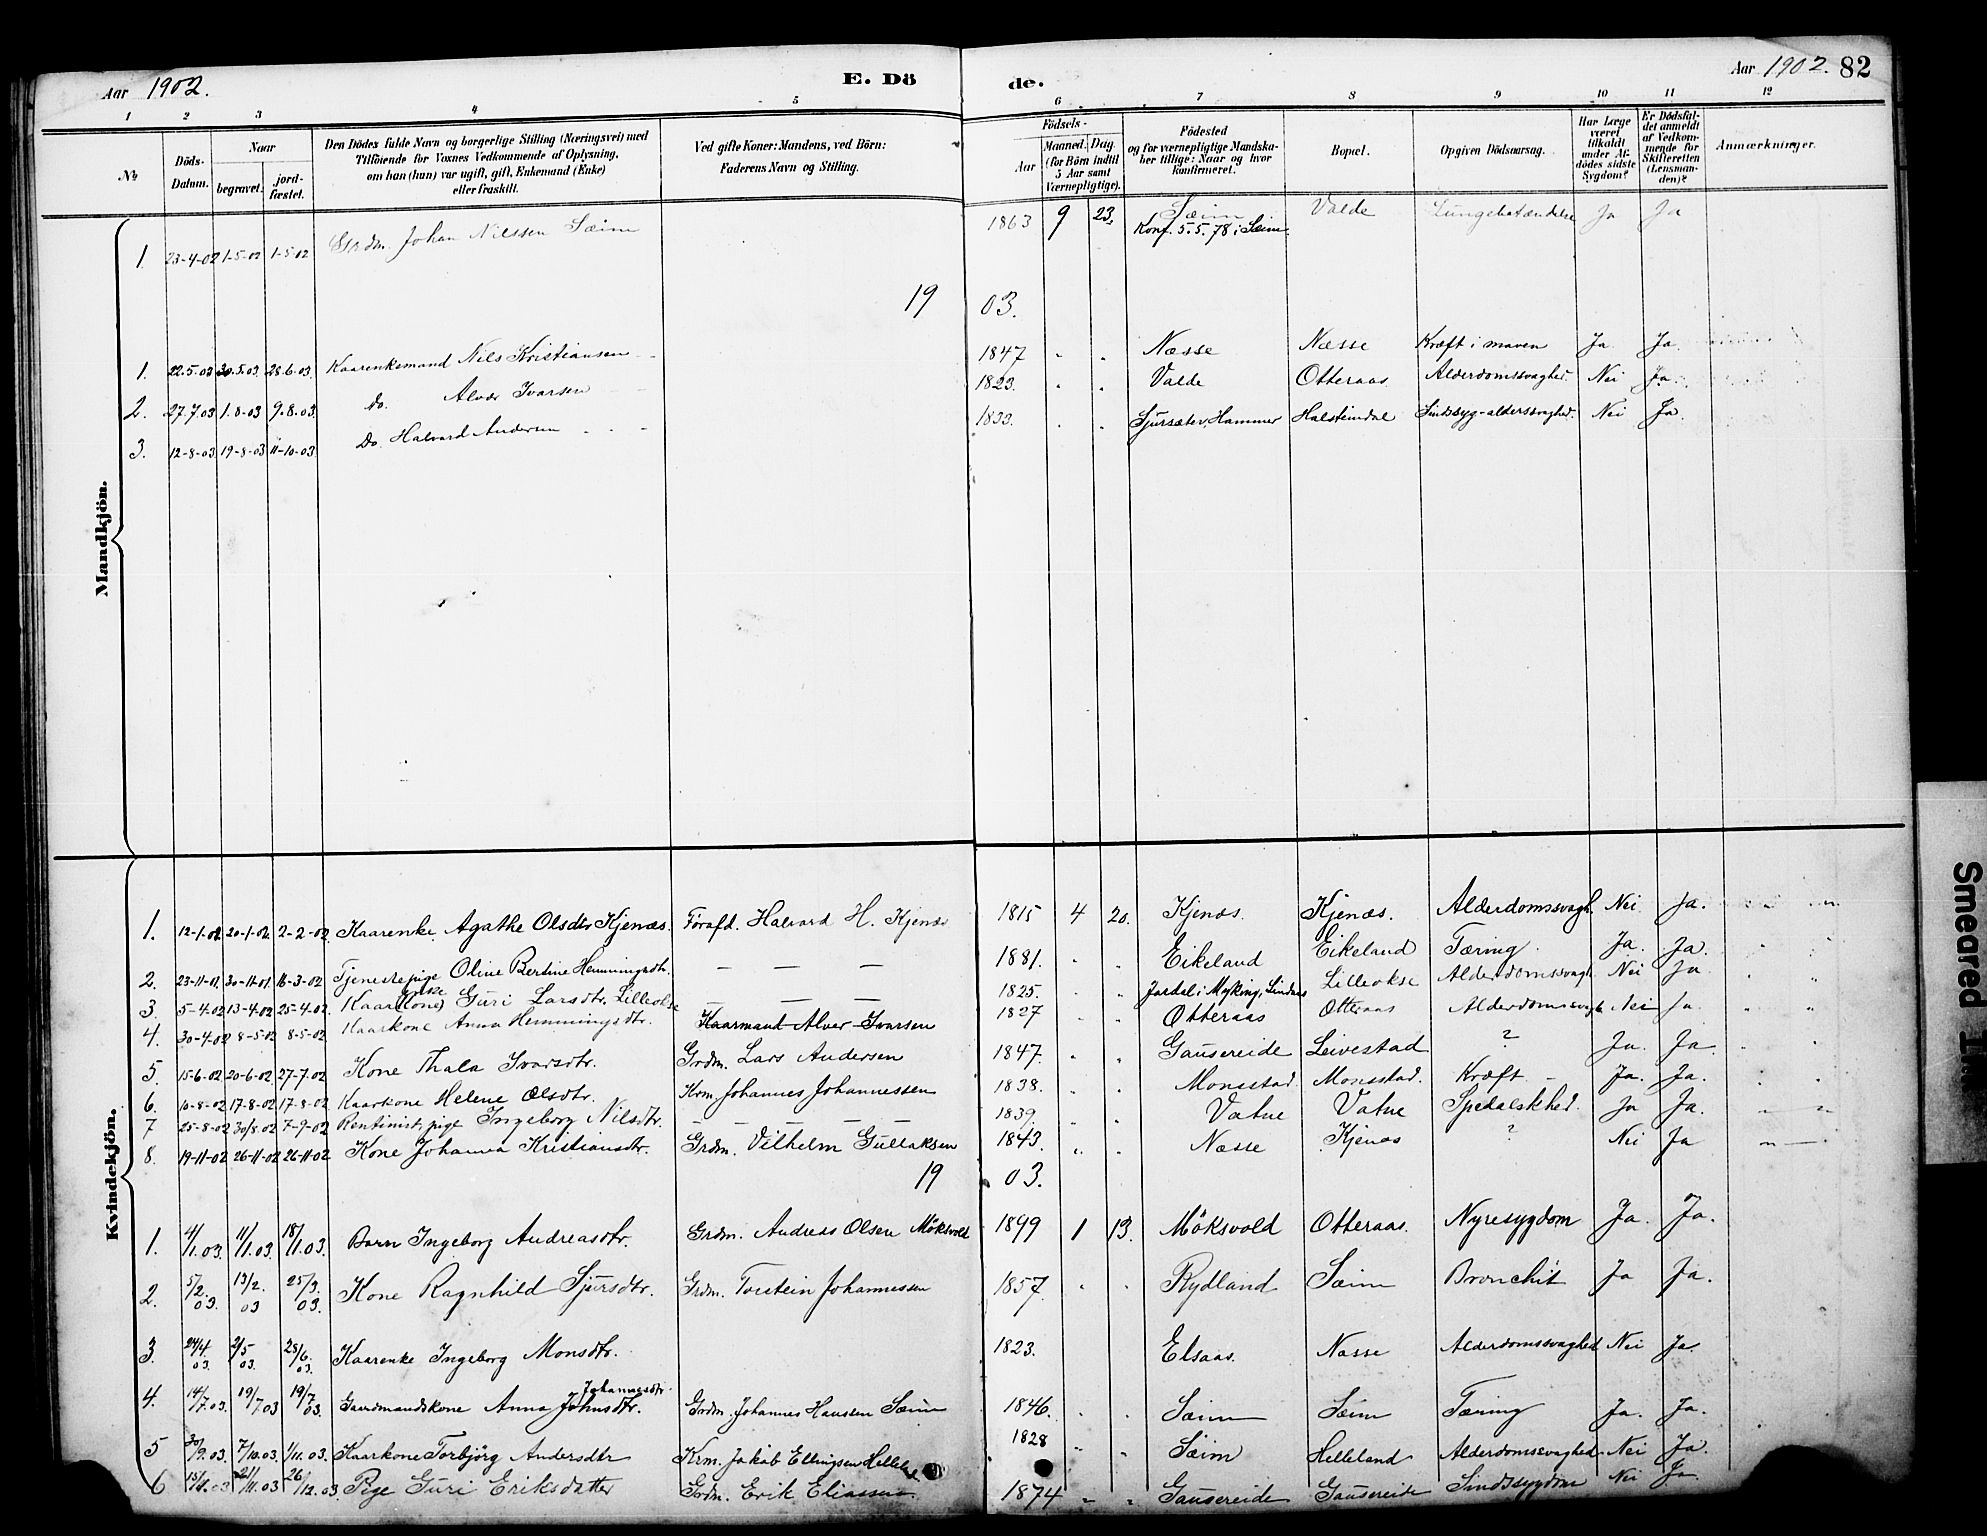 Aar 1902. E. Dö de. Aar 1902. 82
1 2 3 4 5 6 7 8 9 10 11 12
№ Döds-Datum. Naar begravet. jord-fæstet. Den Dödes fulde Navn og borgerlige Stilling (Næringsvei) med Tilföiende for Voxnes Vedkommende af Oplysning, om han (hun) var ugift, gift, Enkemand (Enke) eller fraskilt. Ved gifte Koner: Mandens, ved Börn: Faderens Navn og Stilling. Födsels- Aar Maaned. Dag. (for Börn indtil 5 Aar samt Værnepligtige). Födested og for værnepligtige Mandskaber tillige: Naar og hvor konfirmeret. Bopæl. Opgiven Dödsaarsag. Har Læge været tilkaldt under Afdödes sidste Sygdom? Er Dödsfaldet anmeldt af Vedkommende for Skifteretten (Lensmanden)? Anmærkninger.
Mandkjön.
1. 23-4-02 1-5-02 1-5-02 Grdm. Johan Nilssen Sæim 1863 9 23. Sæim Konf. 5.5.78 i Sæim Valde Lungebetændelse Ja Ja
1903.
1. 22.5.03 30.5.03. 28.6.03. Kaarenkemand Nils Kristiansen 1847 " " Næsse Næsse Kræft i maven Ja Ja
2. 27.7.03 1.8-03 9.8.03. Do. Alver Ivarsen 1823. " " Valde Otteraas Alderdomssvaghed. Nei Ja.
3. 12-8-03 19-8-03 11-10-03. Do. Halvard Andersen 1833. " " Sjursæter, Hammer Halsteindal Sindssyg-alderssvaghed. Nei Ja.
Kvindekjön.
1. 12-1-02 20-1-02 2-2-02 Kaarenke Agathe Olsdtr Kjenæs. Forafd. Halvard H. Kjenæs 1815 4 20. Kjenæs. Kjenæs. Alderdomssvagh. Nei Ja.
2. 23-11-01. 30-11-01 16-3-02 Tjenestepige Oline Bertine Hemmingsdtr. — — — 1881. " " Eikeland Eikeland Tæring. Ja. Ja.
3. 5-4-02 13-4-02 25-4-02 Kaar(kone) enke Guri Larsdtr. Lilleokse — — — 1825. " " Jordal i Myking, Lindaas Lilleokse Alderdomssvagh. Nei Ja
4. 30-4-02 8-5-02 8-5-02 Kaarkone Anna Hemmingsdtr. Kaarmand Alver Ivarsen 1827 " " Otteraas Otteraas Alderdomssvagh Nei Ja.
5. 15-6-02 20-6-02 27-7-02 Kone Thala Ivarsdtr. Grdm. Lars Andersen 1847. " " Gausereide Leivestad ? Ja. Ja.
6. 10-8-02 17-8-02 17-8-02 Kaarkone Helene Olsdtr. Krm. Johannes Johannessen 1838. " " Monsstad Monsstad. Kræft — Ja. Ja.
7 25-8-02 30/8.02 7-9-02 Rentinist, pige Ingeborg Nilsdtr. — — — 1839. " " Vatne Vatne Spedalskhed. Ja Ja.
8. 19-11-02 26-11-02 26-11-02 Kone Johanna Kristiansdtr. Grdm. Vilhelm Gullaksen 1843. " " Næsse Kjenæs ? Nei Ja
1903.
1. 4/1.03. 11/1.03. 18/1.03. Barn Ingeborg Andreasdtr. Grdm. Andreas Olsen Möksvold 1899 1 13. Möksvold Otteraas. Nyresygdom Ja. Ja.
2. 5/2.03. 13/2.03 25/3.03. Kone Ragnhild Sjursdtr. Grdm. Torstein Johannessen 1857. " " Rydland Sæim Bronchit Ja Ja.
3. 24/4.03. 2/5 03. 28/6.03. Kaarenke Ingeborg Monsdtr. 1823. Elsaas. Næsse Alderdomssvaghed Nei Ja.
4. 14/7.03. 19/7.03 19/7.03. Gaardmandskone Anna Johnsdtr. Johannesdtr. Grdm. Johannes Hanssen Sæim 1846. " " Sæim Sæim Tæring Ja. Ja.
5 30/9.03. 7/10.03. 1/11.03. Kaarkone Torbjörg Andersdtr Krm. Jakob Ellingsen Helleland 1828 " " Sæim Helleland Alderdomssvaghed Nei Ja.
6 /11.03 26/12.03. Pige Guri Eriksdatter Grdm. Erik Eliassen 1874 " " Gausereide Gausereide Sindssygdom Nei Ja
Smeared